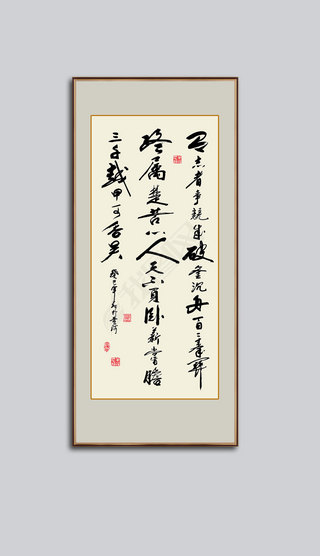 有志者事競成破釜沉舟百二秦関
終属楚苦心人天不負卧薪嘗膽
三千越甲可吞吴
癸巳年